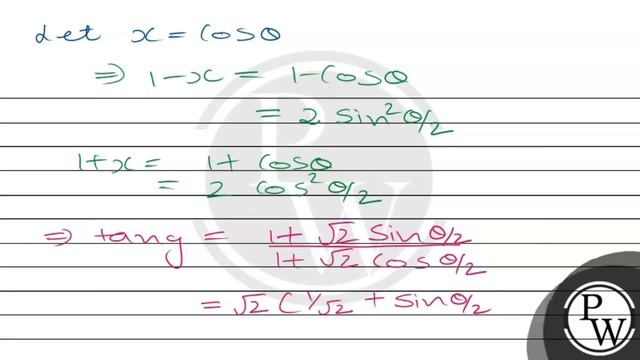 Let x = Cosθ
⇒ 1-x = 1-Cosθ
= 2 sin²θ/2
1+x = 1+ cosθ
= 2 cos²θ/2
⇒ tany = 1+ √2 Sinθ/2 / 1+ √2 cosθ/2
= √2 (1/√2 + sinθ/2
PW
PW